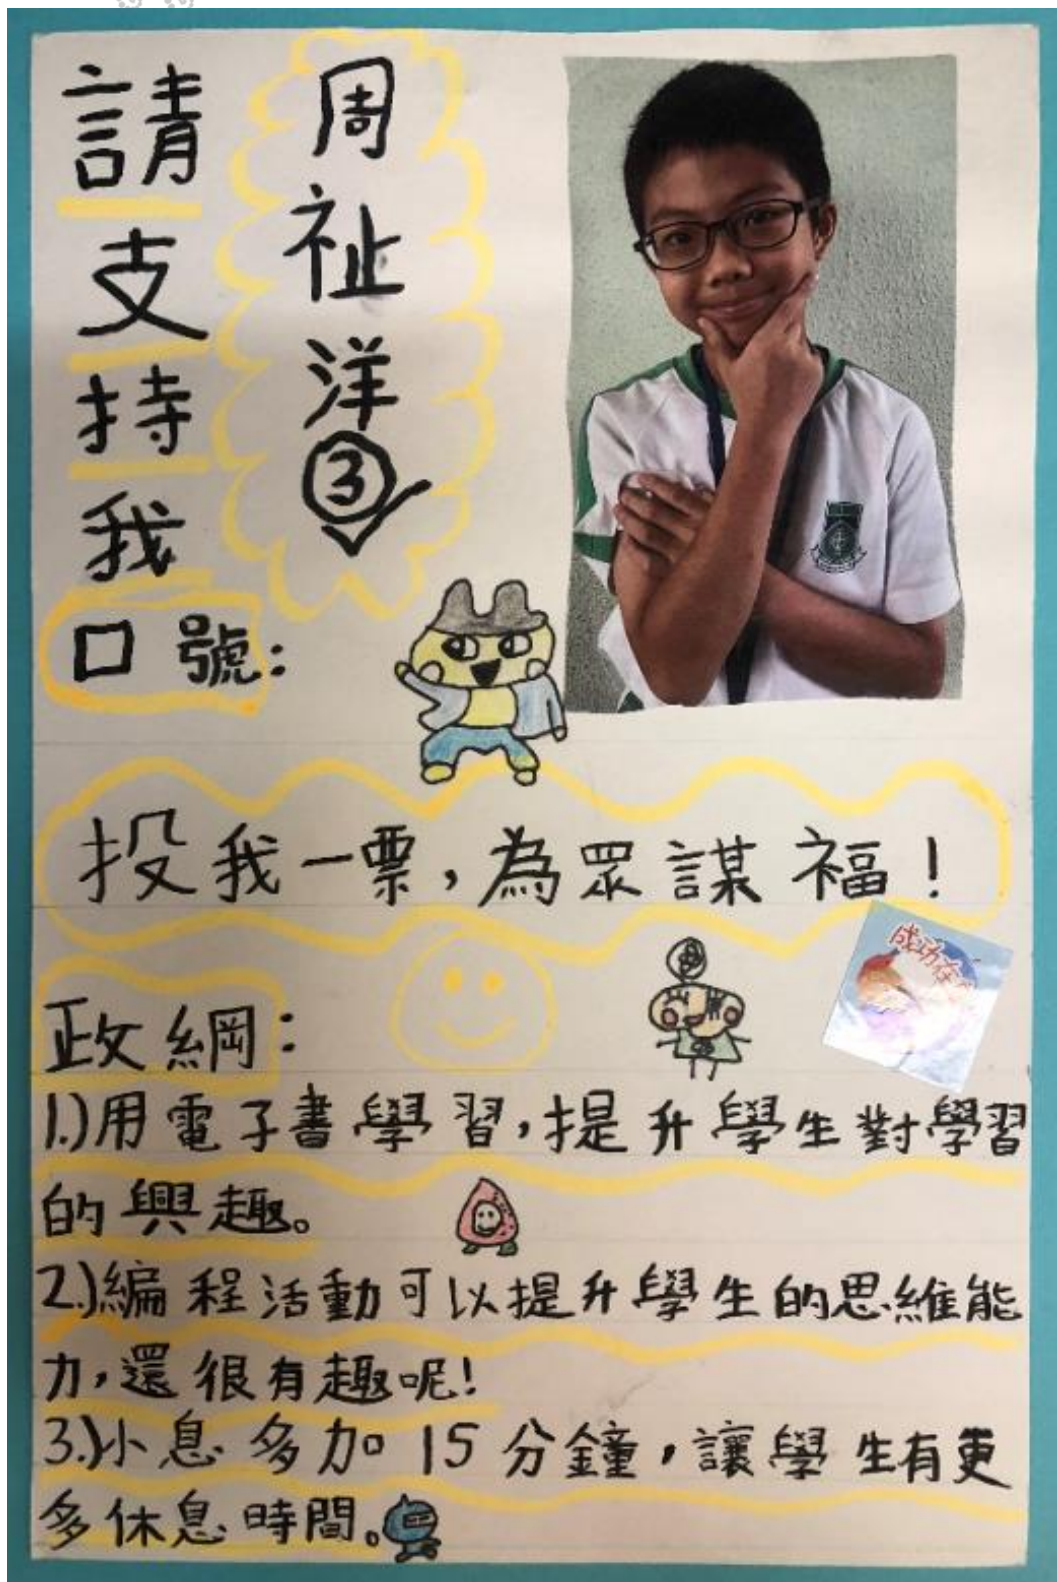 請支持我
周祉洋
③
口號：
投我一票，為眾謀福！
成功在
政綱：
1.)用電子書學習，提升學生對學習
的興趣。
2.)編程活動可以提升學生的思維能
力，還很有趣呢！
3.)小息多加15分鐘，讓學生有更
多休息時間。